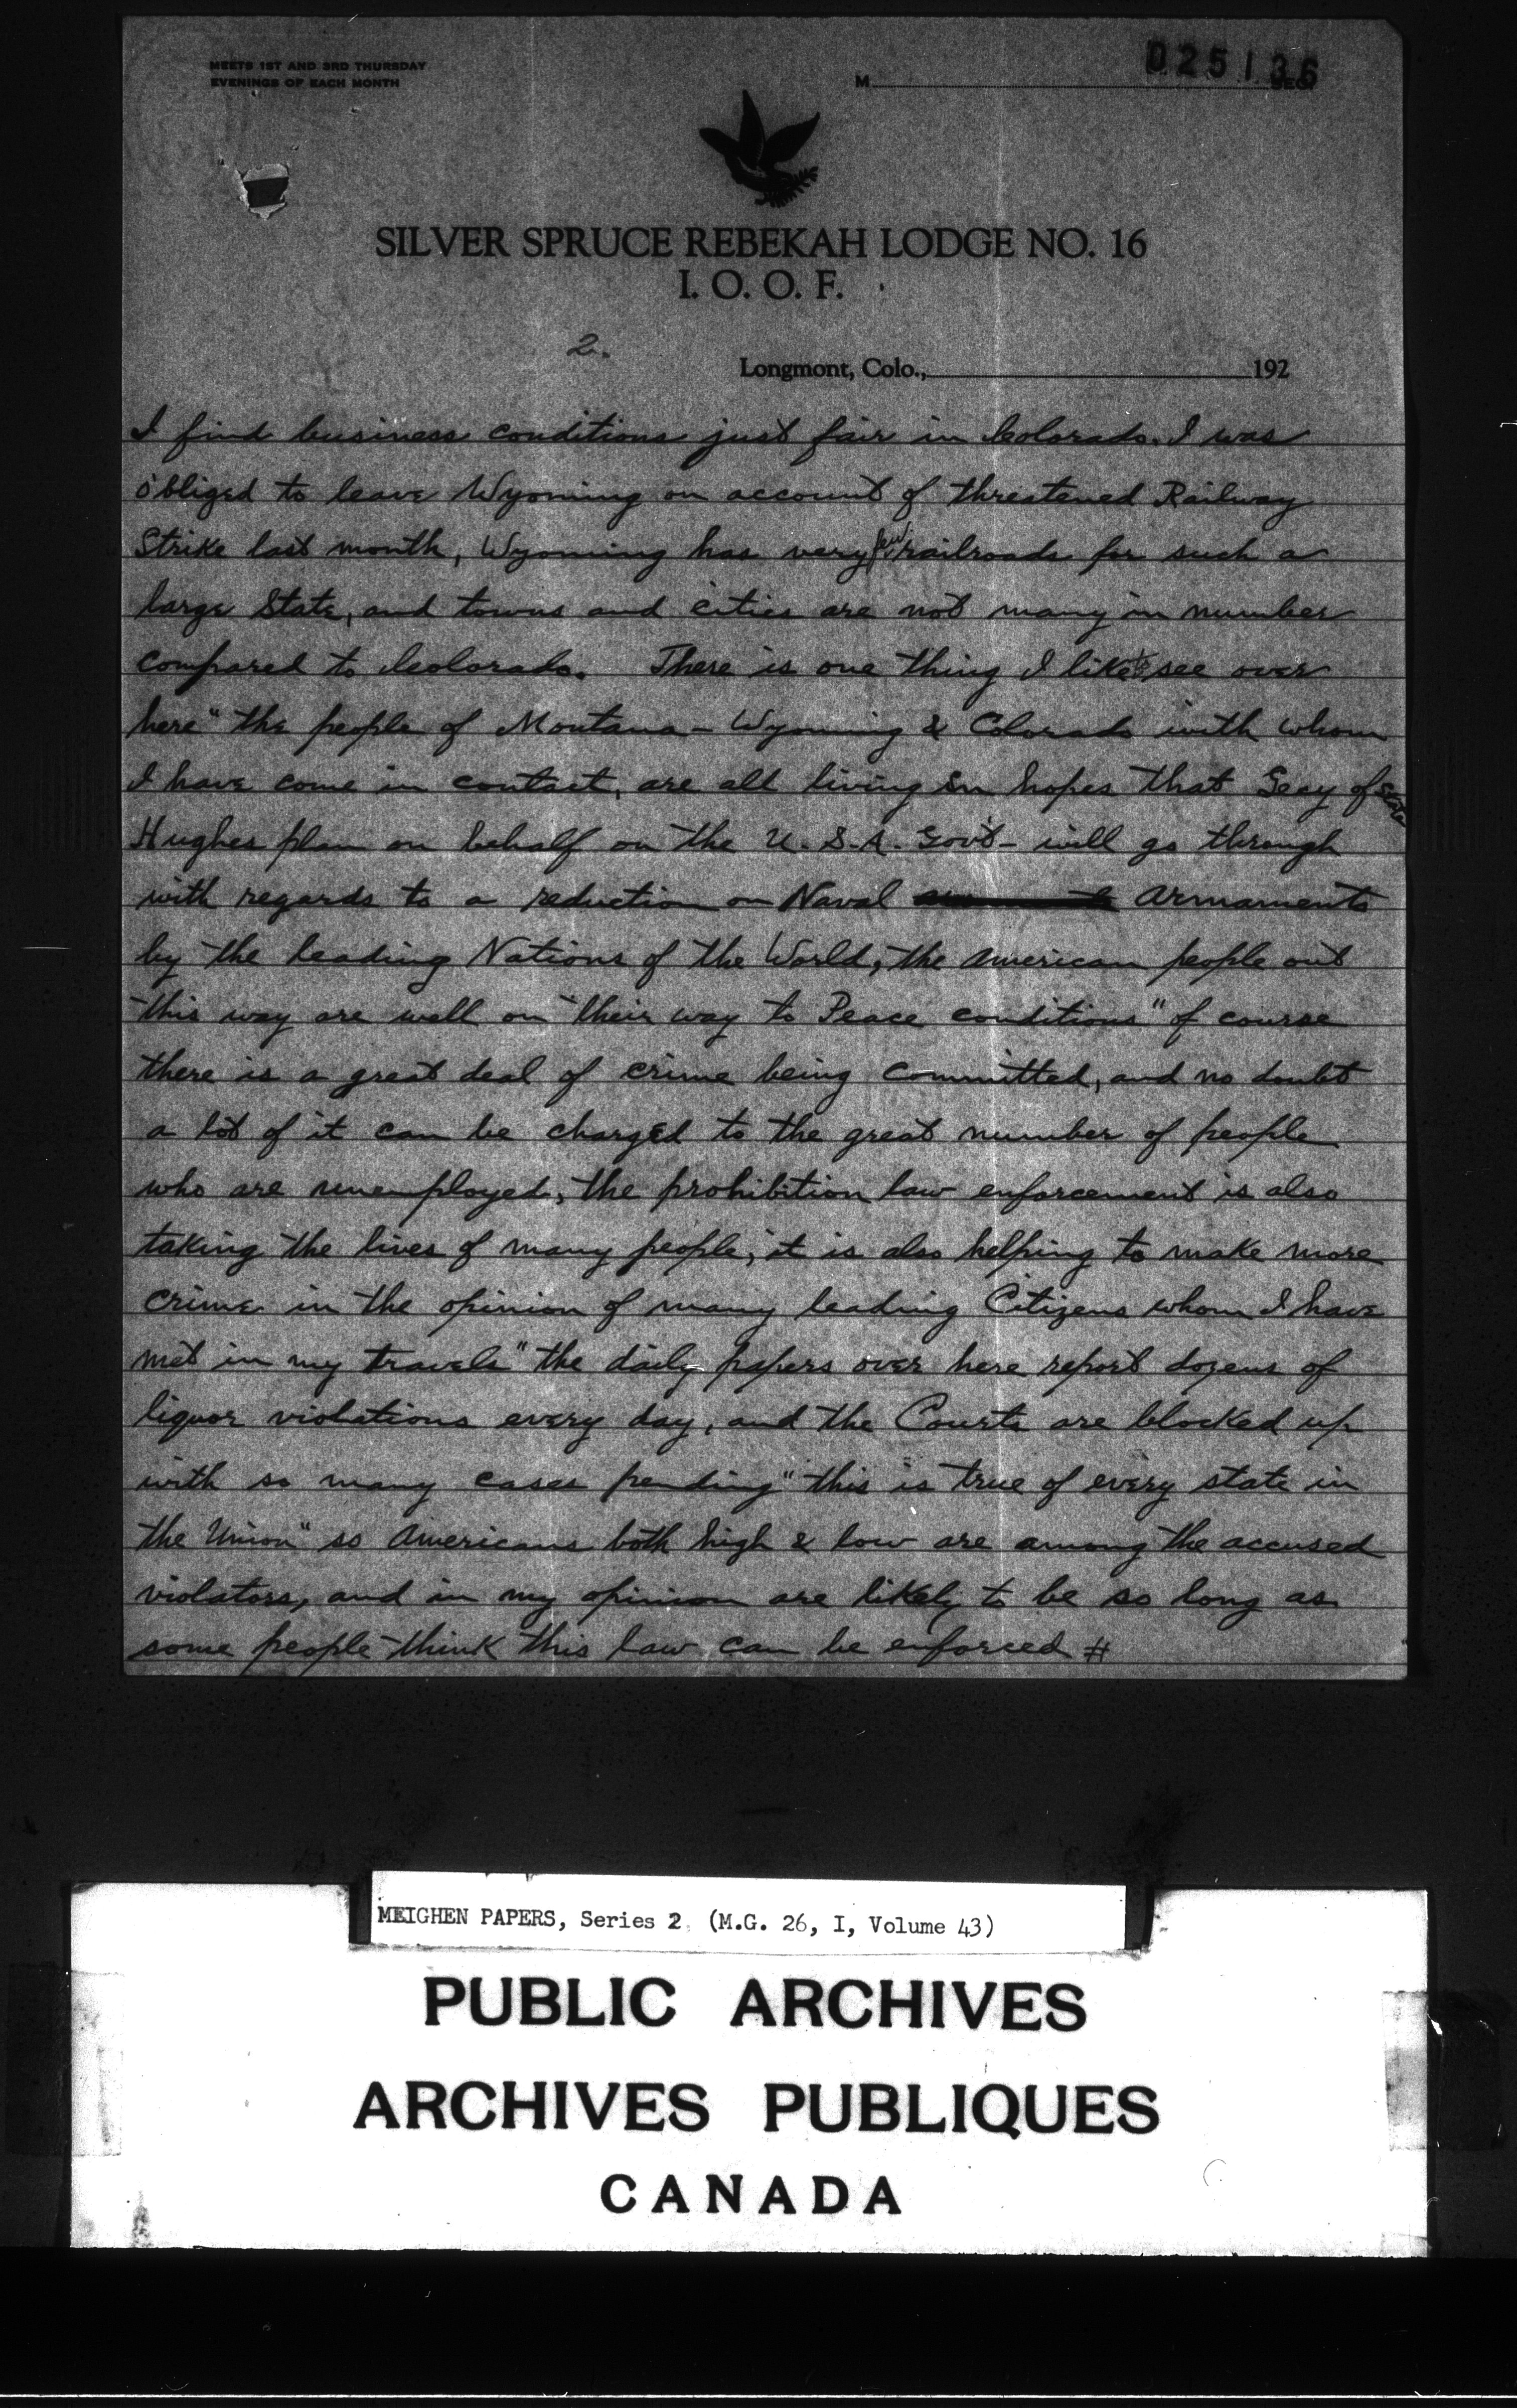 MEETS 1ST AND 3RD THURSDAY
EVENINGS OF EACH MONTH
025136
M SEC.
SILVER SPRUCE REBEKAH LODGE NO. 16
I. O. O. F.
2.
Longmont, Colo., 192
I find business conditions just fair in Colorado. I was
obliged to leave Wyoming on account of threatened Railway
Strike last month, Wyoming has very few railroads for such a
large State, and towns and cities are not many in number
compared to Colorado. There is one thing I like to see over
here" the people of Montana - Wyoming & Colorado with whom
I have come in contact, are all living in hopes that Secy of State
Hughes plan on behalf on the U.S.A. Gov't - will go through
with regards to a reduction on Naval armaments
by the leading Nations of the World, the American people out
this way are well on their way to Peace conditions" of course
there is a great deal of crime being committed, and no doubt
a lot of it can be charged to the great number of people
who are unemployed, the prohibition law enforcement is also
taking the lives of many people, it is also helping to make more
crime in the opinion of many leading Citizens whom I have
met in my travels" the daily papers over here report dozens of
liquor violations every day, and the Courts are blocked up
with so many cases pending" this is true of every state in
the Union" so Americans both high & low are among the accused
violators, and in my opinion are likely to be so long as
some people think this law can be enforced #
MEIGHEN PAPERS, Series 2 (M.G. 26, I, Volume 43)
PUBLIC ARCHIVES
ARCHIVES PUBLIQUES
CANADA